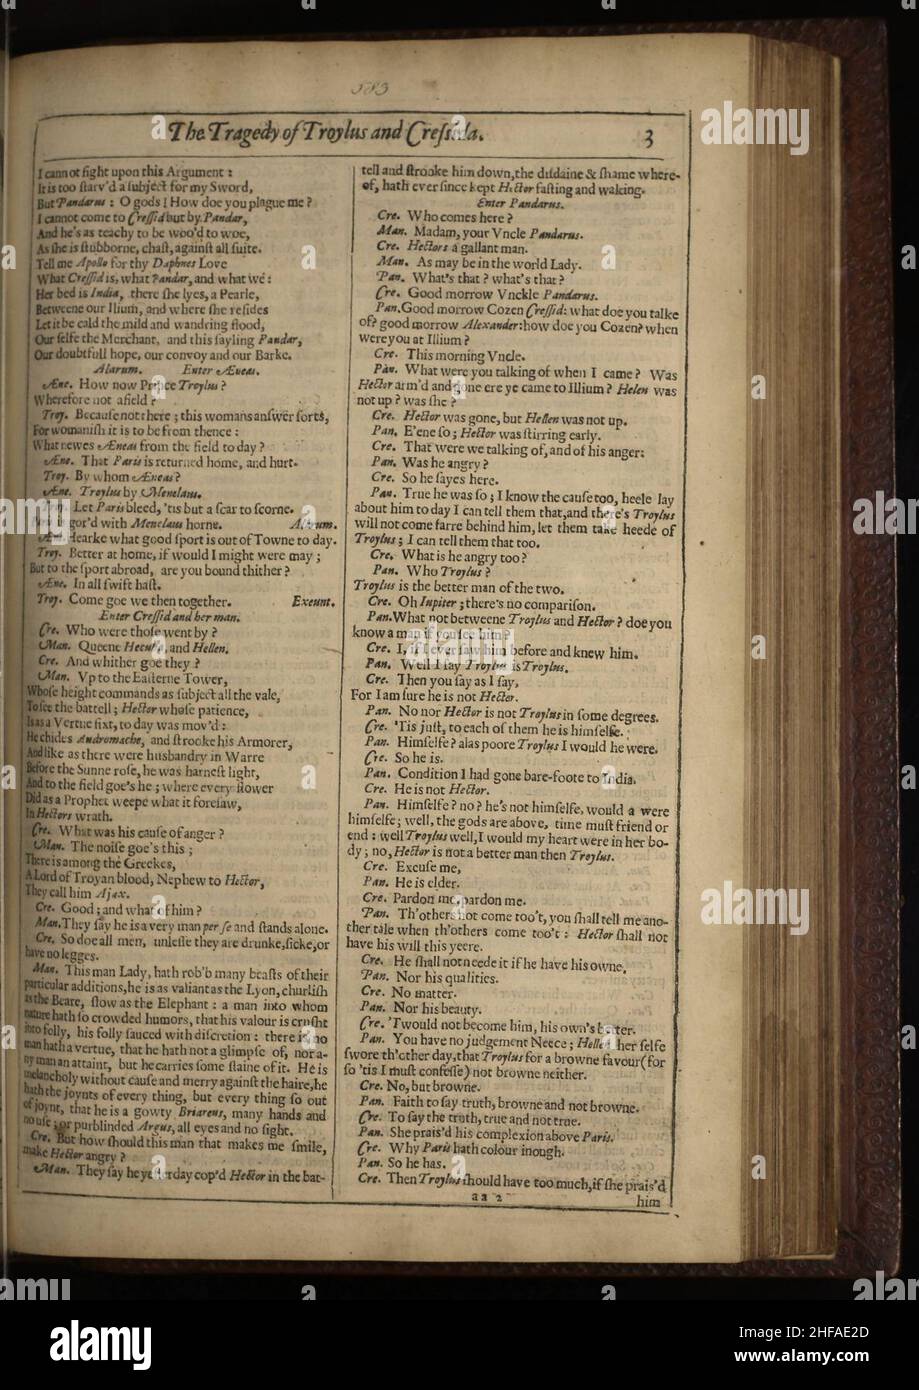 583
The Tragedy of Troylus and Creſſida.
3
I cannot fight upon this Argument :
It is too ſtarv'd a ſubject for my Sword,
But Pandarus : O gods ! How doe you plague me ?
I cannot come to Creſſid but by Pandar,
And he's as teachy to be woo'd to woe,
As ſhe is ſtubborne, chaſt, againſt all ſuite.
Tell me Apollo for thy Daphnes Love
What Creſſid is, what Pandar, and what we :
Her bed is India, there ſhe lyes, a Pearle,
Betweene our Ilium, and where ſhe reſides
Let it be cald the mild and wandring flood,
Our ſelfe the Merchant, and this ſayling Pandar,
Our doubtfull hope, our convoy and our Barke.
Alarum. Enter Æneas.
Æne. How now Prince Troylus ?
Wherefore not afield ?
Troy. Becauſe not there ; this womans anſwer ſorts,
For womaniſh it is to be from thence :
What newes Æneas from the field to day ?
Æne. That Paris is returned home, and hurt.
Troy. By whom Æneas ?
Æne. Troylus by Menelaus.
Troy. Let Paris bleed, 'tis but a ſcar to ſcorne.
Paris is gor'd with Menelaus horne. Alarum.
Æne. Hearke what good ſport is out of Towne to day.
Troy. Better at home, if would I might were may ;
But to the ſport abroad, are you bound thither ?
Æne. In all ſwift haſt.
Troy. Come goe we then together. Exeunt.
Enter Creſſid and her man.
Cre. Who were thoſe went by ?
Man. Queene Hecuba, and Hellen.
Cre. And whither goe they ?
Man. Vp to the Eaſterne Tower,
Whoſe height commands as ſubject all the vale,
To ſee the battell ; Hector whoſe patience,
Is as a Vertue fixt, to day was mov'd :
He chides Andromache, and ſtrooke his Armorer,
And like as there were husbandry in Warre
Before the Sunne roſe, he was harneſt light,
And to the field goe's he ; where every flower
Did as a Prophet weepe what it forſaw,
In Hectors wrath.
Cre. What was his cauſe of anger ?
Man. The noiſe goe's this ;
There is among the Greekes,
A Lord of Troyan blood, Nephew to Hector,
They call him Ajax.
Cre. Good ; and what of him ?
Man. They ſay he is a very man per ſe and ſtands alone.
Cre. So doe all men, unleſſe they are drunke, ſicke, or
have no legges.
Man. This man Lady, hath rob'd many beaſts of their
particular additions, he is as valiant as the Lyon, churliſh
as the Beare, ſlow as the Elephant : a man into whom
nature hath ſo crowded humors, that his valour is cruſht
into folly, his folly ſauced with diſcretion : there is no
man hath a vertue, that he hath not a glimpſe of, nor a-
ny man an attaint, but he carries ſome ſtaine of it. He is
melancholy without cauſe and merry againſt the haire, he
hath the joynts of every thing, but every thing ſo out
of joynt, that he is a gowty Briareus, many hands and
no uſe ; or purblinded Argus, all eyes and no ſight.
Cre. But how ſhould this man that makes me ſmile,
make Hector angry ?
Man. They ſay he yeſterday cop'd Hector in the bat-
tell and ſtrooke him down, the diſdaine & ſhame where-
of, hath ever ſince kept Hector faſting and waking.
Enter Pandarus.
Cre. Who comes here ?
Man. Madam, your Vncle Pandarus.
Cre. Hectors a gallant man.
Man. As may be in the world Lady.
Pan. What's that ? what's that ?
Cre. Good morrow Vnckle Pandarus.
Pan. Good morrow Cozen Creſſid : what doe you talke
of ? good morrow Alexander : how doe you Cozen ? when
were you at Illium ?
Cre. This morning Vncle.
Pan. What were you talking of when I came ? Was
Hector arm'd and gone ere ye came to Illium ? Helen was
not up ? was ſhe ?
Cre. Hector was gone, but Hellen was not up.
Pan. E'ene ſo ; Hector was ſtirring early.
Cre. That were we talking of, and of his anger.
Pan. Was he angry ?
Cre. So he ſayes here.
Pan. True he was ſo ; I know the cauſe too, heele lay
about him to day I can tell them that, and there's Troylus
will not come farre behind him, let them take heede of
Troylus ; I can tell them that too.
Cre. What is he angry too ?
Pan. Who Troylus ?
Troylus is the better man of the two.
Cre. Oh Iupiter ; there's no compariſon.
Pan. What not betweene Troylus and Hector ? doe you
know a man if you ſee him ?
Cre. I, if I ever ſaw him before and knew him.
Pan. Well I ſay Troylus is Troylus.
Cre. Then you ſay as I ſay,
For I am ſure he is not Hector.
Pan. No nor Hector is not Troylus in ſome degrees.
Cre. 'Tis juſt, to each of them he is himſelfe.
Pan. Himſelfe ? alas poore Troylus I would he were.
Cre. So he is.
Pan. Condition I had gone bare-foote to India.
Cre. He is not Hector.
Pan. Himſelfe ? no ? he's not himſelfe, would a were
himſelfe ; well, the gods are above, time muſt friend or
end : well Troylus well, I would my heart were in her bo-
dy ; no, Hector is not a better man then Troylus.
Cre. Excuſe me,
Pan. He is elder.
Cre. Pardon me, pardon me.
Pan. Th'others not come too't, you ſhall tell me ano-
ther tale when th'others come too't : Hector ſhall not
have his will this yeere.
Cre. He ſhall not neede it if he have his owne.
Pan. Nor his qualities.
Cre. No matter.
Pan. Nor his beauty.
Cre. 'Twould not become him, his own's better.
Pan. You have no judgement Neece ; Hellen her ſelfe
ſwore th'other day, that Troylus for a browne favour (for
ſo 'tis I muſt confeſſe) not browne neither.
Cre. No, but browne.
Pan. Faith to ſay truth, browne and not browne.
Cre. To ſay the truth, true and not true.
Pan. She prais'd his complexion above Paris.
Cre. Why Paris hath colour inough.
Pan. So he has.
Cre. Then Troylus ſhould have too much, if ſhe prais'd
aa 2
him
alamy
Image ID: 2HFAE2D
www.alamy.com